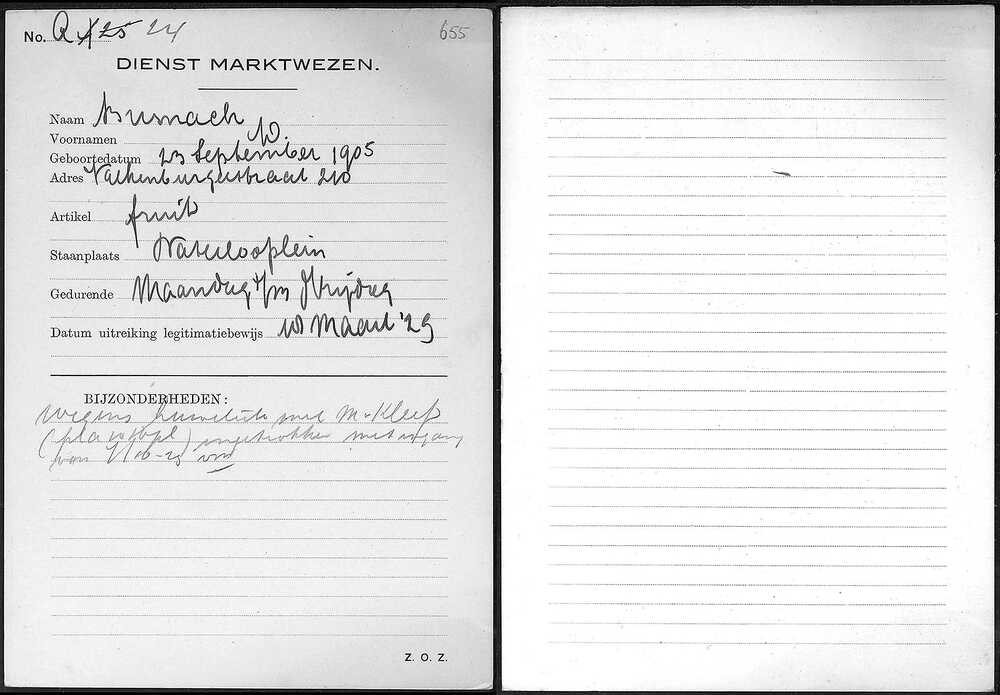 No. R 25 24
655
DIENST MARKTWEZEN.
Naam Busnach
Voornamen W.
Geboortedatum 23 September 1905
Adres Valkenburgerstraat 210
Artikel fruit
Staanplaats Waterlooplein
Gedurende Maandag t/m Vrijdag
Datum uitreiking legitimatiebewijs 18 Maart '29
BIJZONDERHEDEN:
wegens huwelijk met M v Kleef
(pl ) ingetrokken met ingang
van
Z. O. Z.